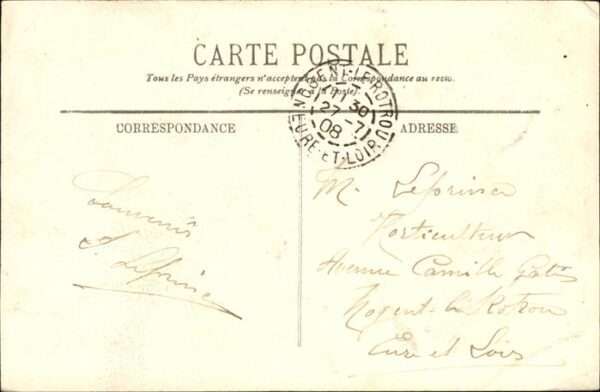 CARTE POSTALE
Tous les Pays étrangers n'acceptent pas la Correspondance au recto.
(Se renseigner à la Poste)
NOGENT-LE-ROTROU
11 30
27 -7
08
EURE-ET-LOIR
CORRESPONDANCE
ADRESSE
Souvenirs
A. Leprince
M. Leprince
Horticulteur
Avenue Camille
Nogent-le-Rotrou
Eure et Loir